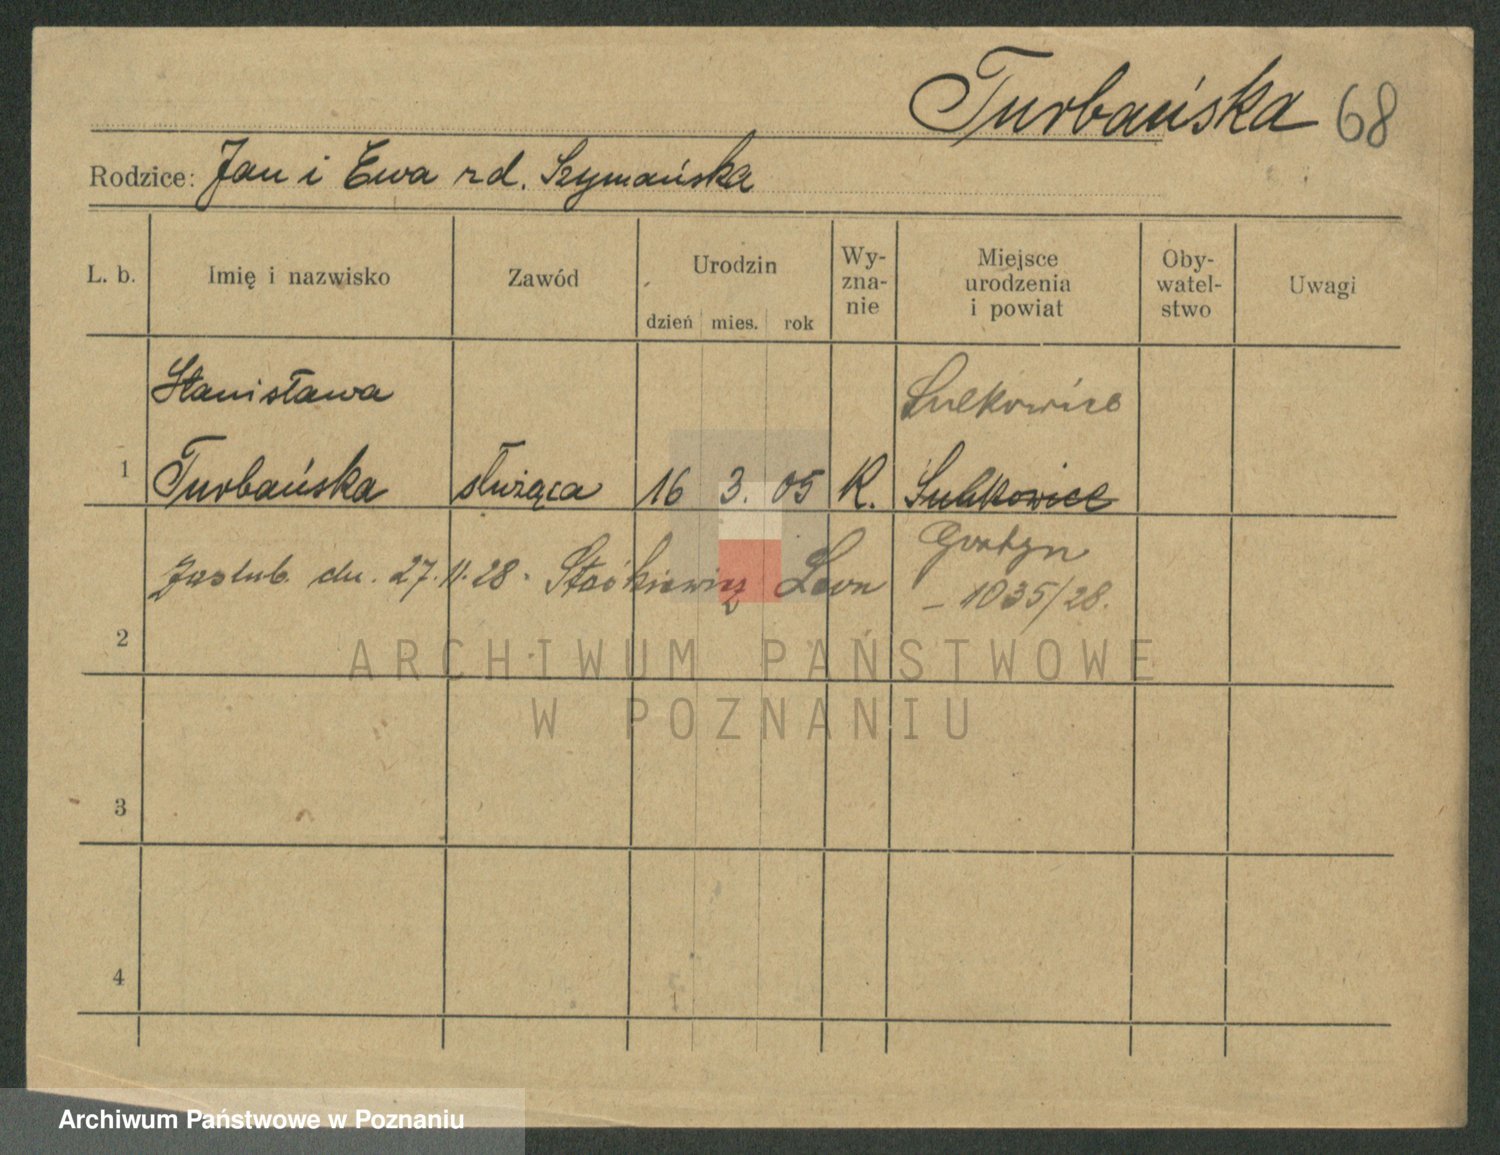 Turbańska 68
Rodzice: Jan i Ewa rd. Szymańska
L. b. Imię i nazwisko Zawód Urodzin dzień mies. rok Wy-zna-nie Miejsce urodzenia i powiat Oby-watel-stwo Uwagi
Stanisława Sulkowice
1 Turbańska służąca 16 3. 05 R. Sulkowice
Gostyn
zaślub. dn. 27.11.28. Leon
– 1035/28.
2
ARCHIWUM PAŃSTWOWE
W POZNANIU
3
4
Archiwum Państwowe w Poznaniu